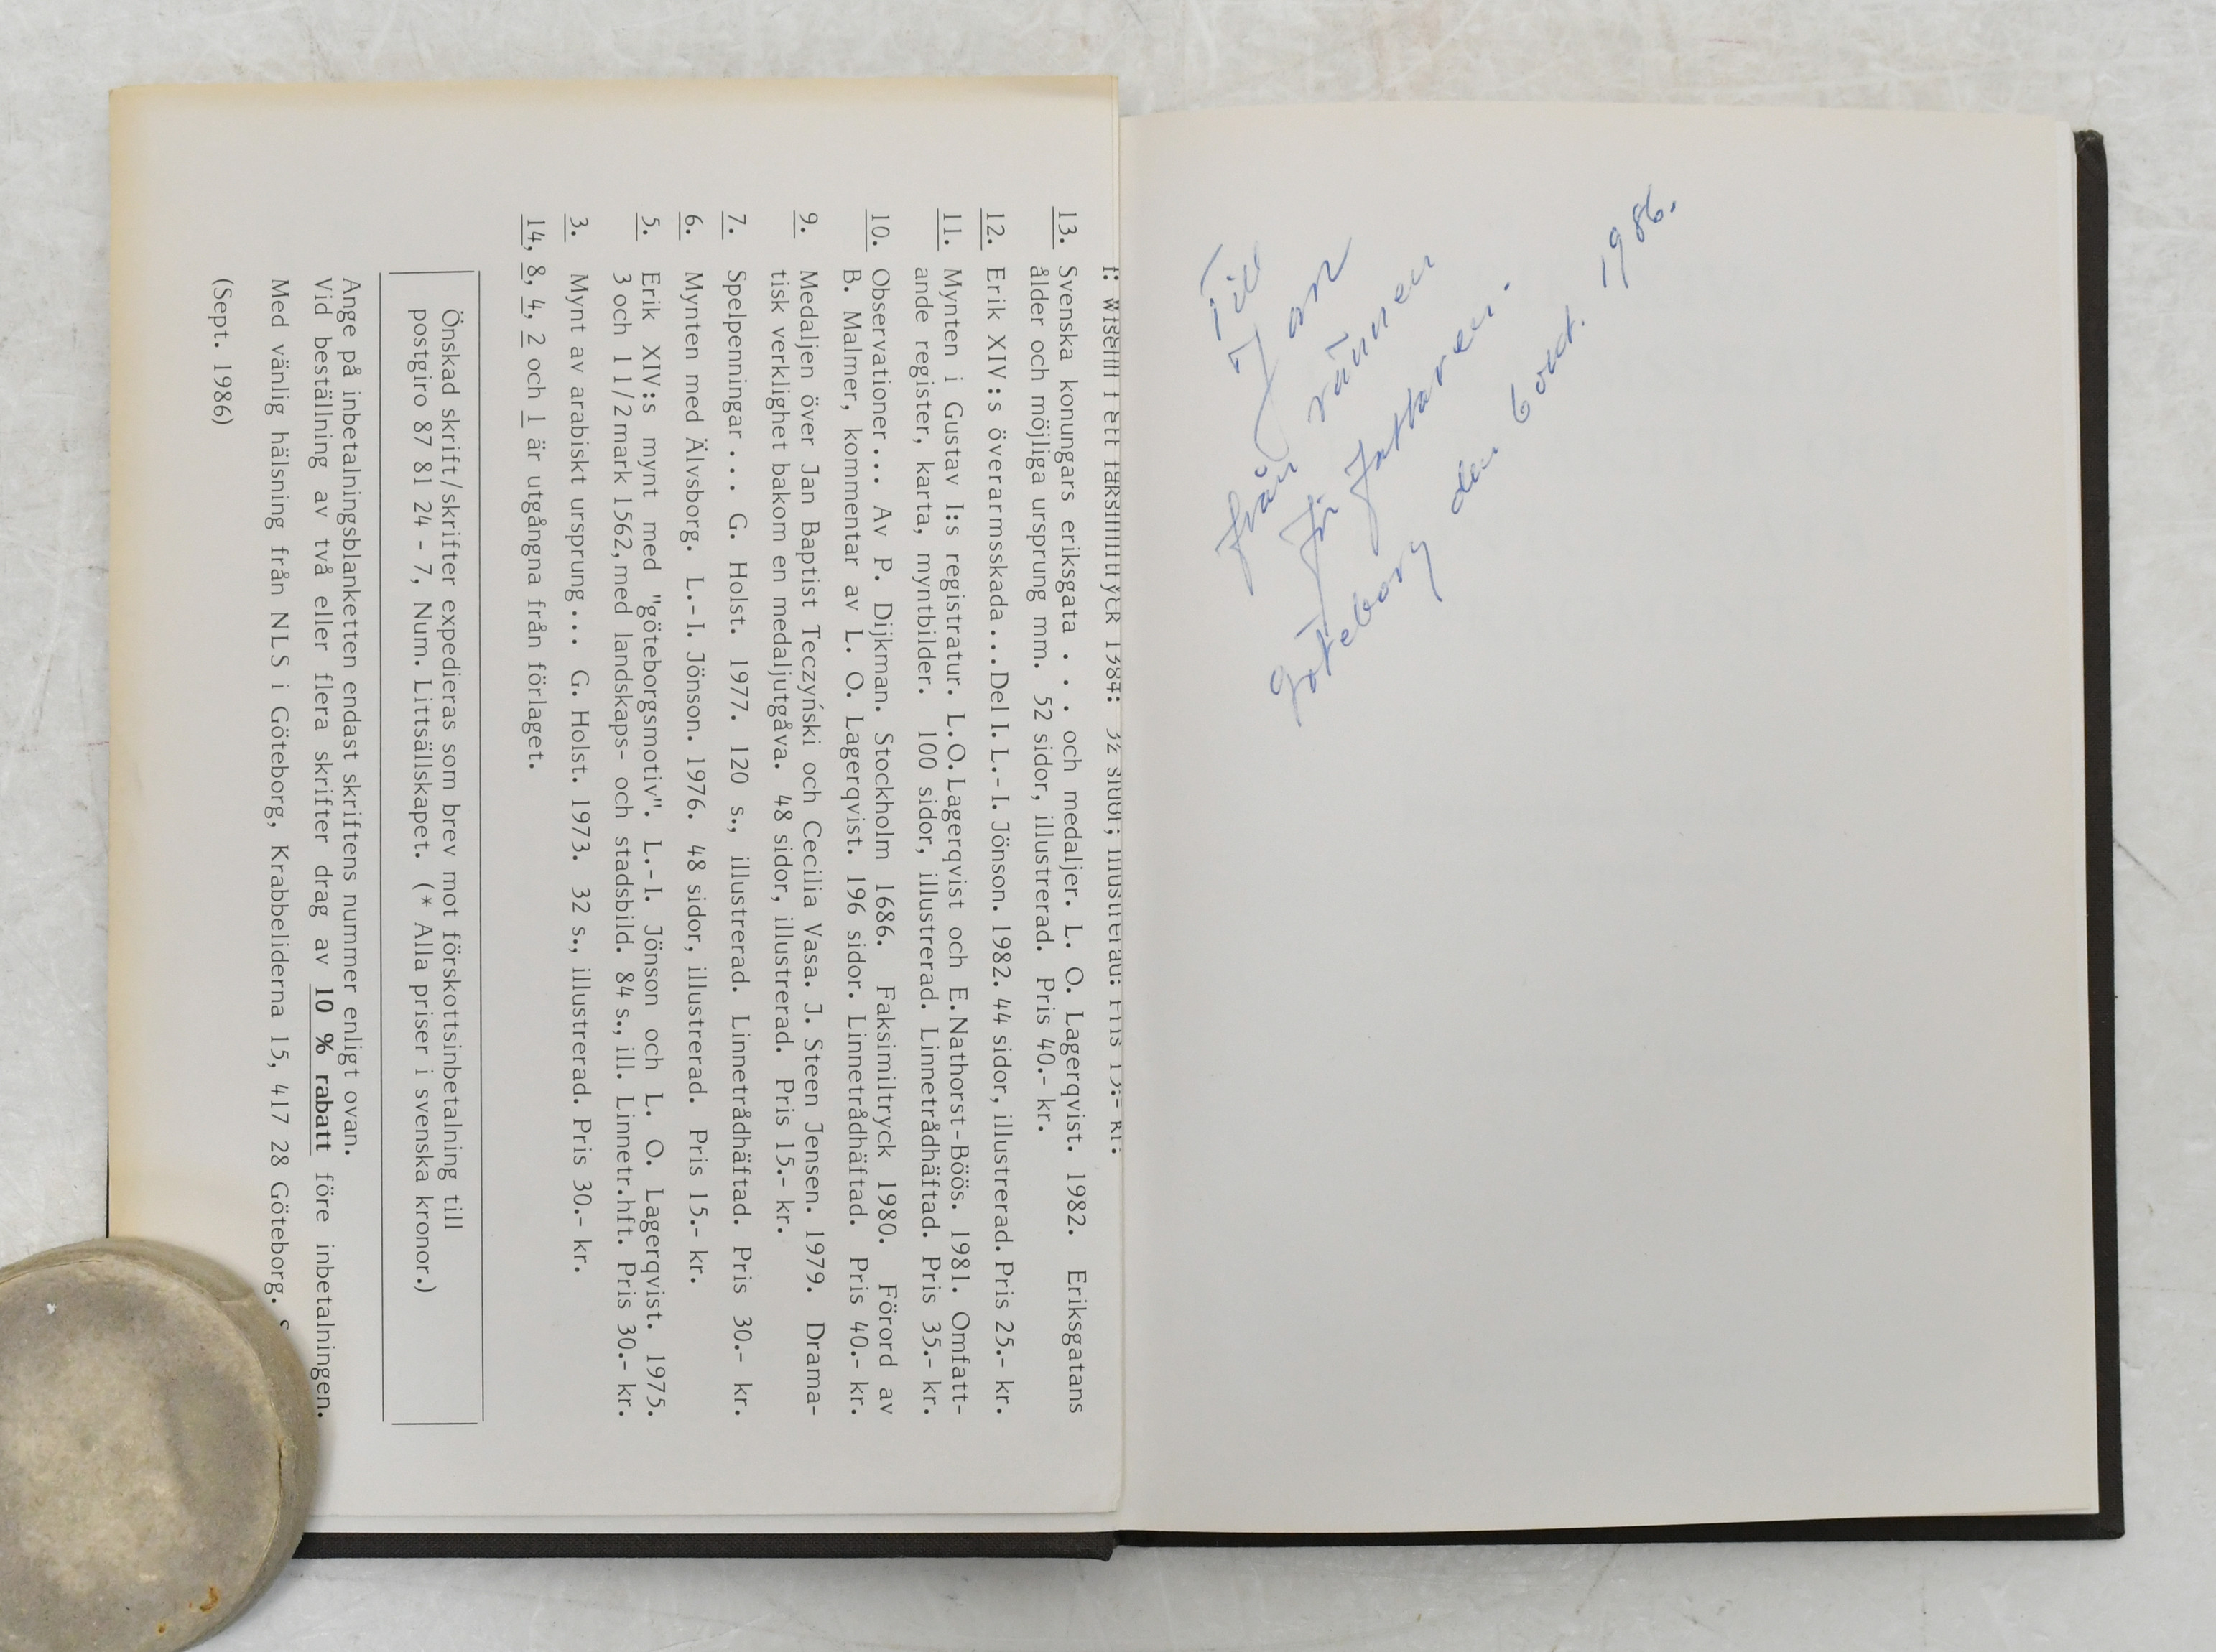 i ett faksimiltryck 1984. 32 sidor, illustrerad. Pris 15.- kr.
13. Svenska konungars eriksgata . . . och medaljer. L. O. Lagerqvist. 1982. Eriksgatans
ålder och möjliga ursprung mm. 52 sidor, illustrerad. Pris 40.- kr.
12. Erik XIV:s överarmsskada...Del I. L.-I. Jönson. 1982. 44 sidor, illustrerad. Pris 25.- kr.
11. Mynten i Gustav I:s registratur. L.O.Lagerqvist och E.Nathorst-Böös. 1981. Omfatt-
ande register, karta, myntbilder. 100 sidor, illustrerad. Linnetrådhäftad. Pris 35.- kr.
10. Observationer... Av P. Dijkman. Stockholm 1686. Faksimiltryck 1980. Förord av
B. Malmer, kommentar av L. O. Lagerqvist. 196 sidor. Linnetrådhäftad. Pris 40.- kr.
9. Medaljen över Jan Baptist Teczyński och Cecilia Vasa. J. Steen Jensen. 1979. Drama-
tisk verklighet bakom en medaljutgåva. 48 sidor, illustrerad. Pris 15.- kr.
7. Spelpenningar ... G. Holst. 1977. 120 s., illustrerad. Linnetrådhäftad. Pris 30.- kr.
6. Mynten med Älvsborg. L.-I. Jönson. 1976. 48 sidor, illustrerad. Pris 15.- kr.
5. Erik XIV:s mynt med "göteborgsmotiv". L.-I. Jönson och L. O. Lagerqvist. 1975.
3 och 1 1/2 mark 1562, med landskaps- och stadsbild. 84 s., ill. Linnetr.hft. Pris 30.- kr.
3. Mynt av arabiskt ursprung... G. Holst. 1973. 32 s., illustrerad. Pris 30.- kr.
14, 8, 4, 2 och 1 är utgångna från förlaget.
Önskad skrift/skrifter expedieras som brev mot förskottsinbetalning till
postgiro 87 81 24 - 7, Num. Littsällskapet. (* Alla priser i svenska kronor.)
Ange på inbetalningsblanketten endast skriftens nummer enligt ovan.
Vid beställning av två eller flera skrifter drag av 10 % rabatt före inbetalningen.
Med vänlig hälsning från NLS i Göteborg, Krabbeliderna 15, 417 28 Göteborg.
(Sept. 1986)
Till
från vännen
författaren.
Göteborg den 6 1986.